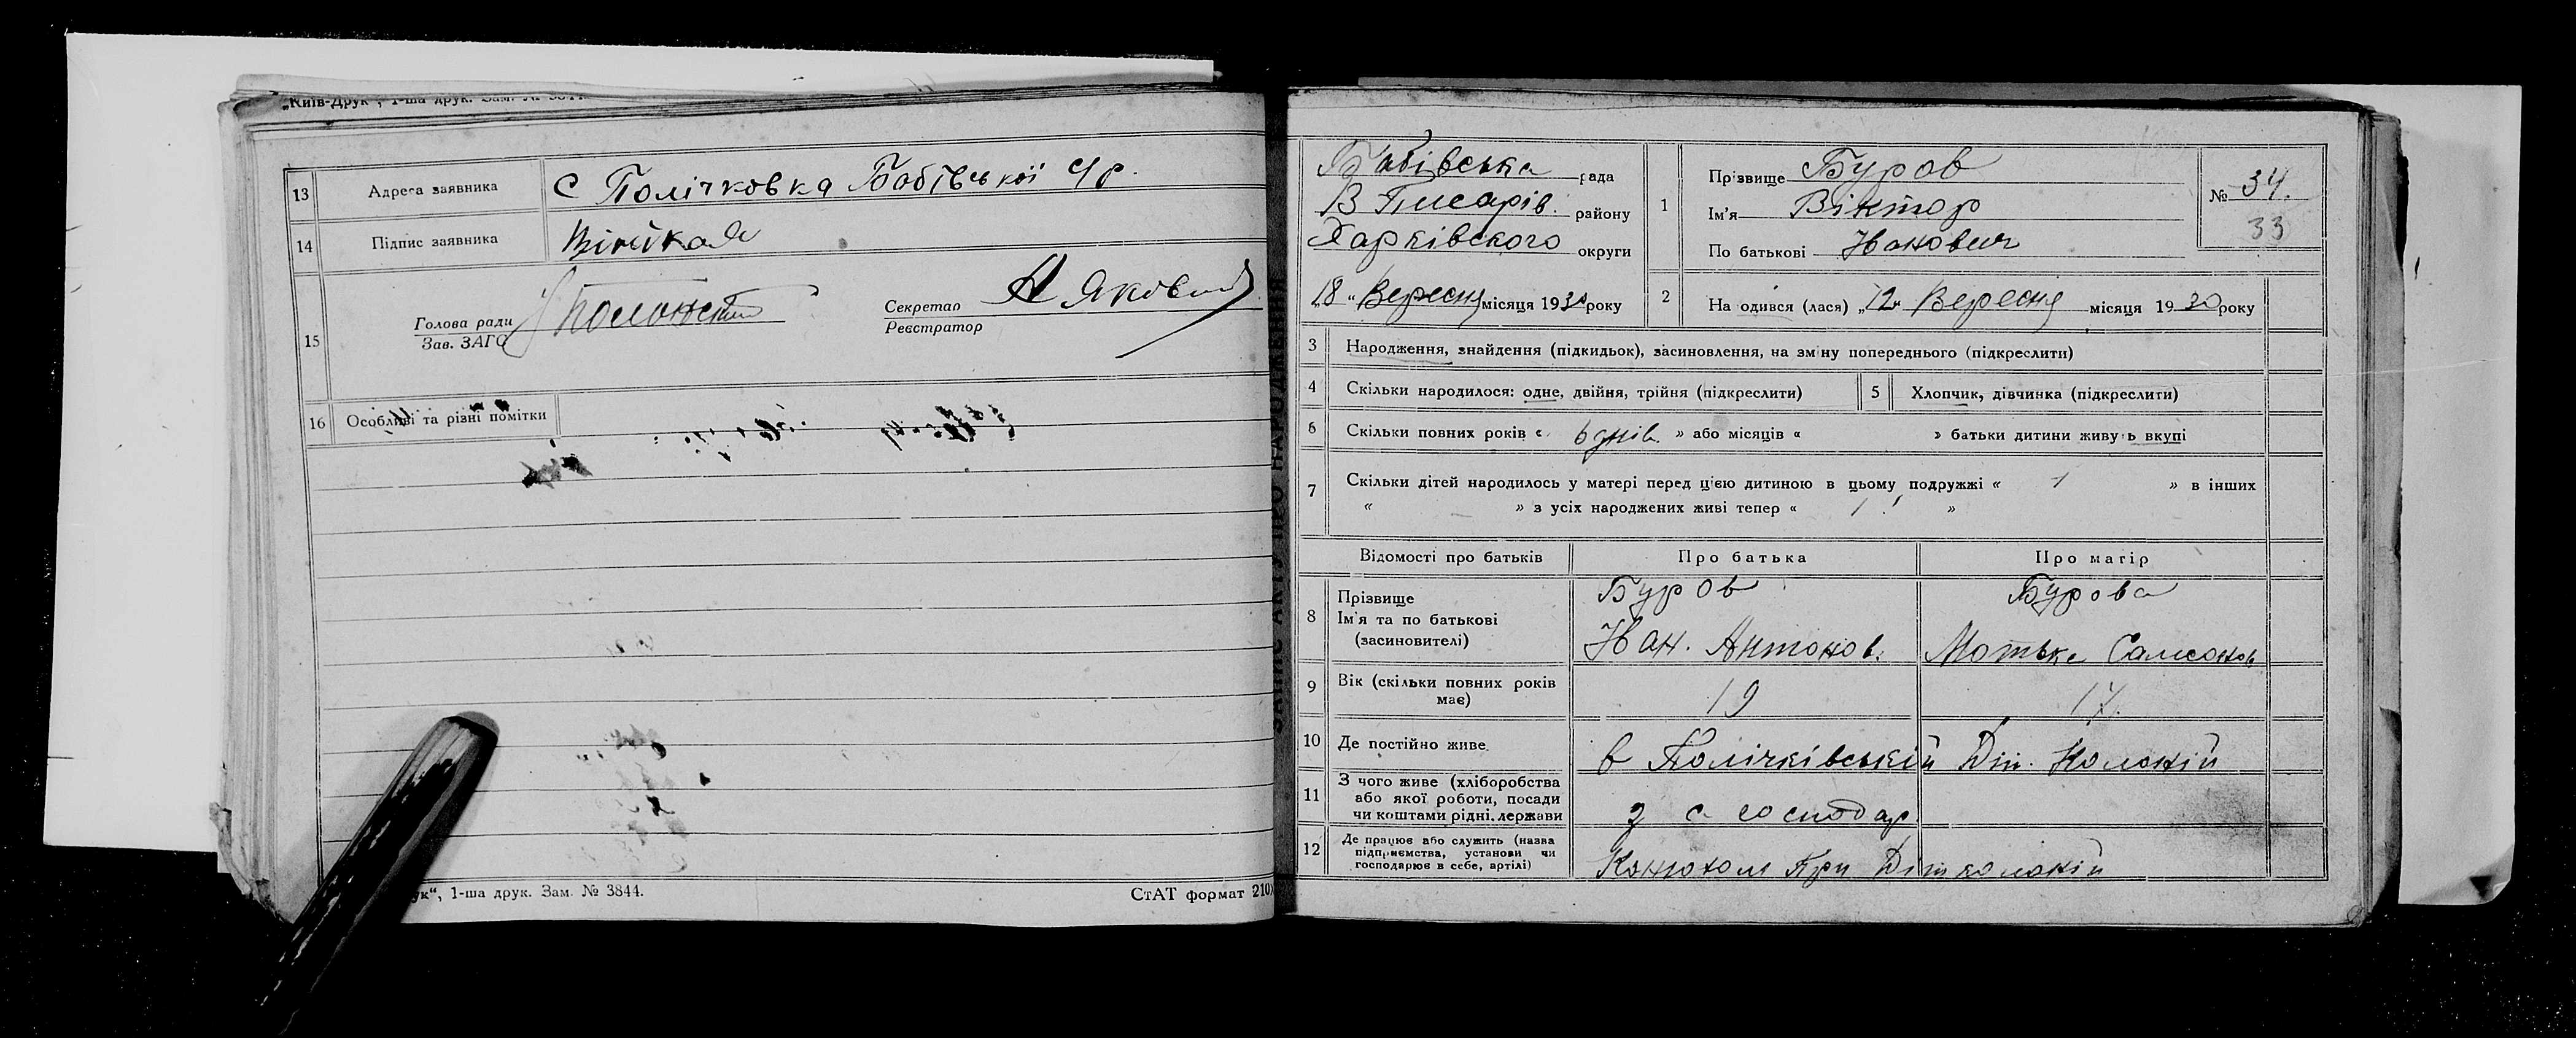 „Київ-Друк“, 1-ша друк. Зам. № 3844.
13 Адреса заявника С Полічковка Бабівської С/р.
14 Підпис заявника
15 Голова ради
Зав. ЗАГС
Секретар
Реєстратор Н Яковий
16 Особливі та різні помітки
ук“, 1-ша друк. Зам. № 3844.
СтАТ формат 210
ЗАПИС АКТУ ПРО НАРОДЖЕННЯ
Бабівська рада
В Писарів. району
Харківского округи
„18“ Вересня місяця 1930 року
1 Прізвище Буров
Ім’я Віктор
По батькові Іванович
№ 34.
33
2 На одився (лася) „12“ Вересня місяця 1930 року
3 Народження, знайдення (підкидьок), засиновлення, на зміну попереднього (підкреслити)
4 Скільки народилося: одне, двійня, трійня (підкреслити)
5 Хлопчик, дівчинка (підкреслити)
6 Скільки повних років « 6 днів. » або місяців « » батьки дитини живуть вкупі
7 Скільки дітей народилось у матері перед цією дитиною в цьому подружжі « 1 » в інших
« — » з усіх народжених живі тепер « 1 »
Відомості про батьків Про батька Про матір
8 Прізвище
Ім’я та по батькові
(засиновителі)
Буров
Іван. Антонов.
Бурова
Мотька Самсонов
9 Вік (скільки повних років
має)
19
17.
10 Де постійно живе в Полічківській Діт. Колонії
11 З чого живе (хліборобства
або якої роботи, посади
чи коштами рідні, держави
з с господар
12 Де працює або служить (назва
підприємства, установи чи
господарює в себе, артілі)
Конюхом при Діт колонії